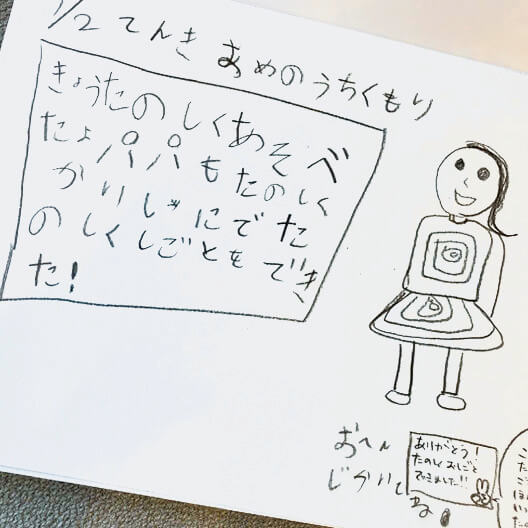 1/2 てんき あめのうちくもり
きょうたのしくあそべ
たよパパもたのしく
かりしゅにでた
のしくしごとをでき
た!
おへん
じかいてね!
ありがとう!
たのしくおしごと
できました!!